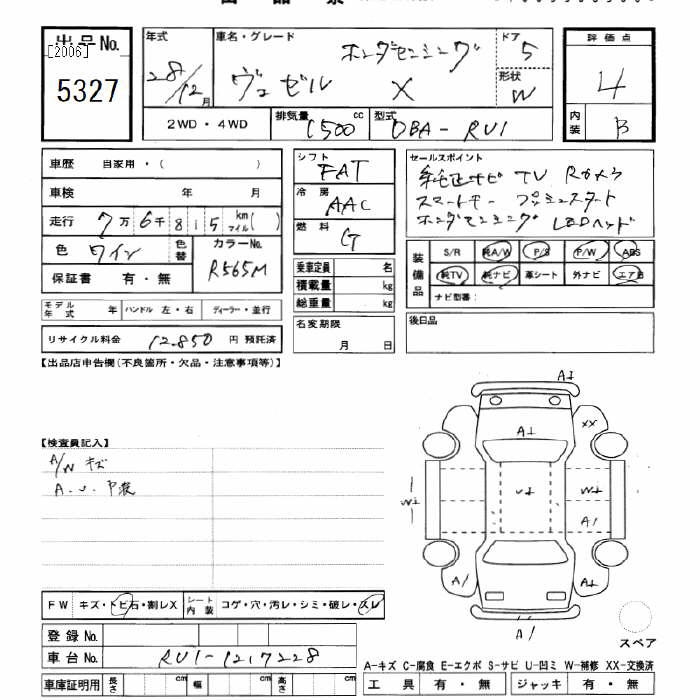 出品No.
[2006]
5327
年式
28/12月
車名・グレード
ホンダセンシング
ヴェゼル X
ドア
5
形状
W
評価点
4
内装
B
2WD・4WD
排気量 1500 cc
型式 DBA-RU1
車歴 自家用・( )
車検 年 月
走行 7万6千815 km マイル( )
色 ワイン
色替
カラーNo.
R565M
保証書 有・無
モデル年式 年 ハンドル 左・右 ディーラー・並行
リサイクル料金 12.850 円 預託済
シフト FAT
冷房 AAC
燃料 G
乗車定員 名
積載量 kg
総重量 kg
名変期限
月 日
セールスポイント
純正ナビ TV Rカメラ
スマートキー プッシュスタート
ホンダセンシング LEDヘッド
装備品
S/R 純A/W P/S P/W ABS
純TV 純ナビ 革シート 外ナビ エアB
ナビ型番:
後日品
【出品店申告欄(不良箇所・欠品・注意事項等)】
【検査員記入】
A/W キズ
A.U.
A1
A1
XX
W1
U1
W1
A1
A1
A1
A1
スペア
FW キズ・トビ石・割レX シート内装 コゲ・穴・汚レ・シミ・破レ・スレ
登録No.
車台No. RU1-1217228
A-キズ C-腐食 E-エクボ S-サビ U-凹ミ W-補修 XX-交換済
車庫証明用 長さ cm 幅 cm 高さ cm
工具 有・無 ジャッキ 有・無